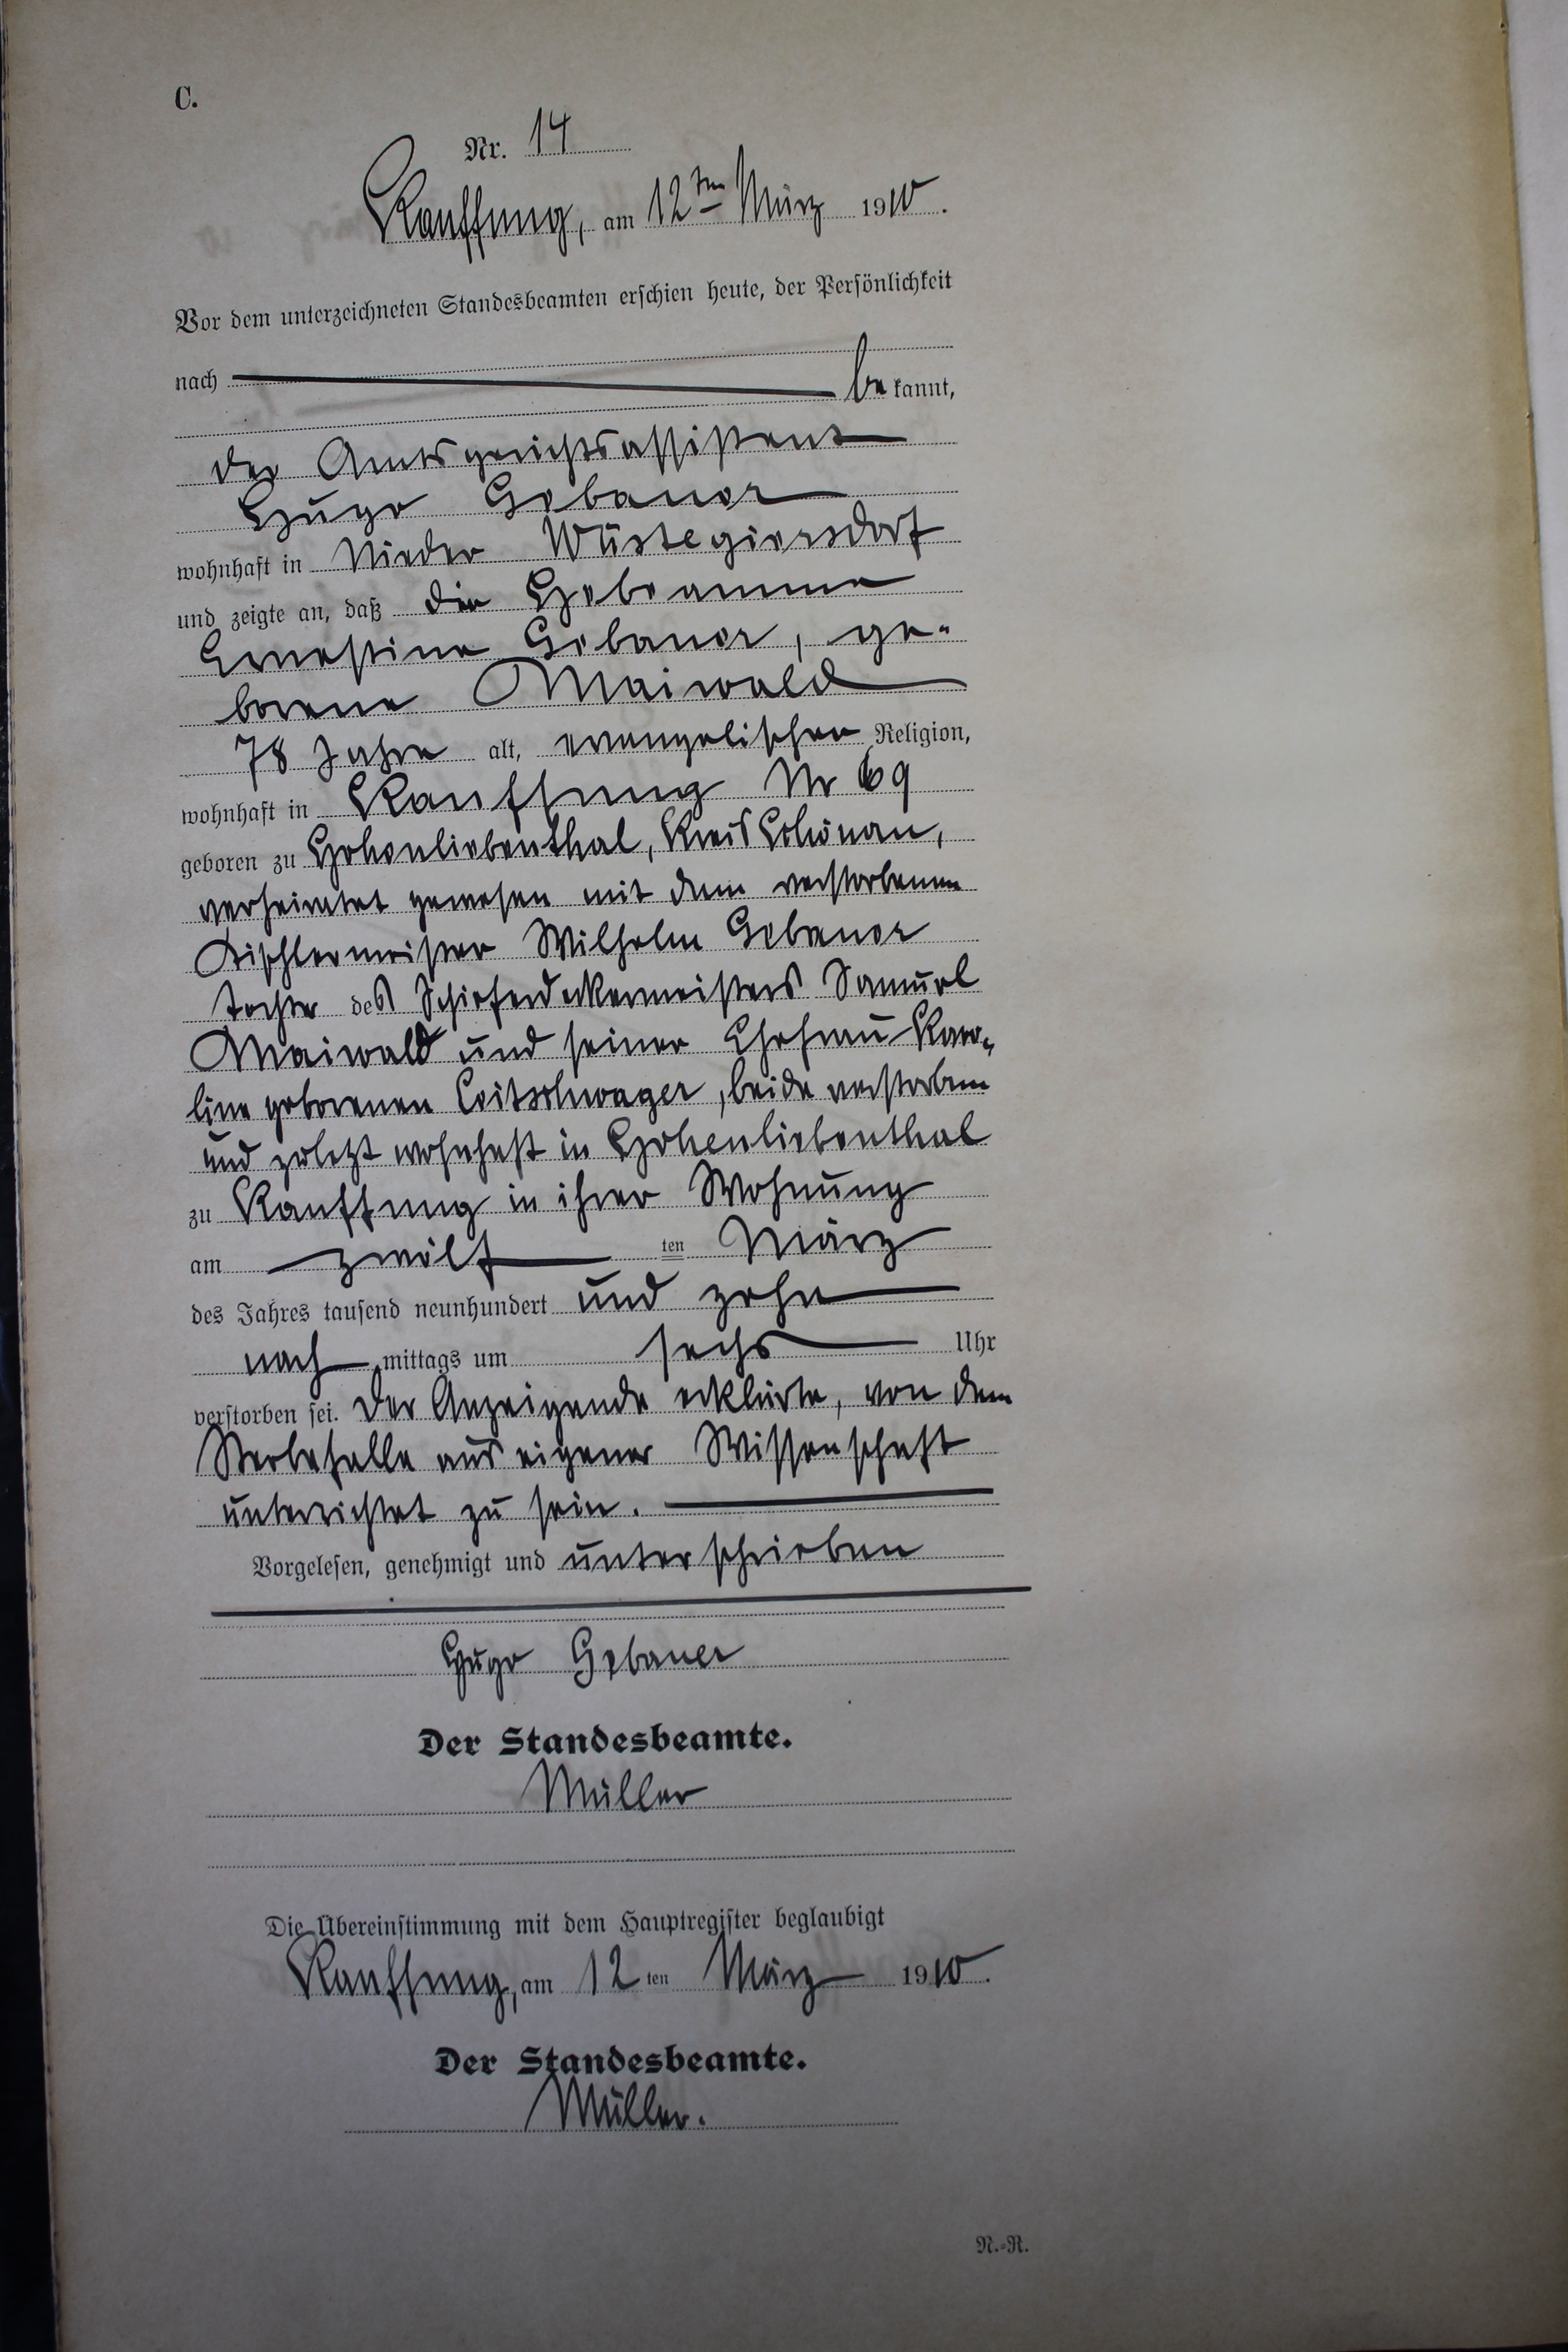 C.
Nr. 14
Kauffung, am 12ten März 1910.
Vor dem unterzeichneten Standesbeamten erschien heute, der Persönlichkeit
nach be kannt,
der Amtsgerichtsassistent
Hugo Gebauer
wohnhaft in Nieder Wüstegiersdorf
und zeigte an, daß die Hebeamme
Ernestine Gebauer, ge-
borene Maiwald
78 Jahre alt, evangelischer Religion,
wohnhaft in Kauffung Nr 69
geboren zu Hohenliebenthal, Kreis Schönau,
verheiratet gewesen mit dem verstorbenen
Tischlermeister Wilhelm Gebauer
Tochter des Schieferdeckermeisters Samuel
Maiwald und seiner Ehefrau Karo-
line geborenen Leitschwager, beide verstorben
und zuletzt wohnhaft in Hohenliebenthal
zu Kauffung in ihrer Wohnung
am zwölf ten März
des Jahres tausend neunhundert und zehn
nach mittags um sechs Uhr
verstorben sei. Der Anzeigende erklärte, von dem
Sterbefalle aus eigener Wissenschaft
unterrichtet zu sein.
Vorgelesen, genehmigt und unterschrieben
Hugo Gebauer
Der Standesbeamte.
Müller
Die Übereinstimmung mit dem Hauptregister beglaubigt
Kauffung, am 12 ten März 1910.
Der Standesbeamte.
Müller.
N.-R.